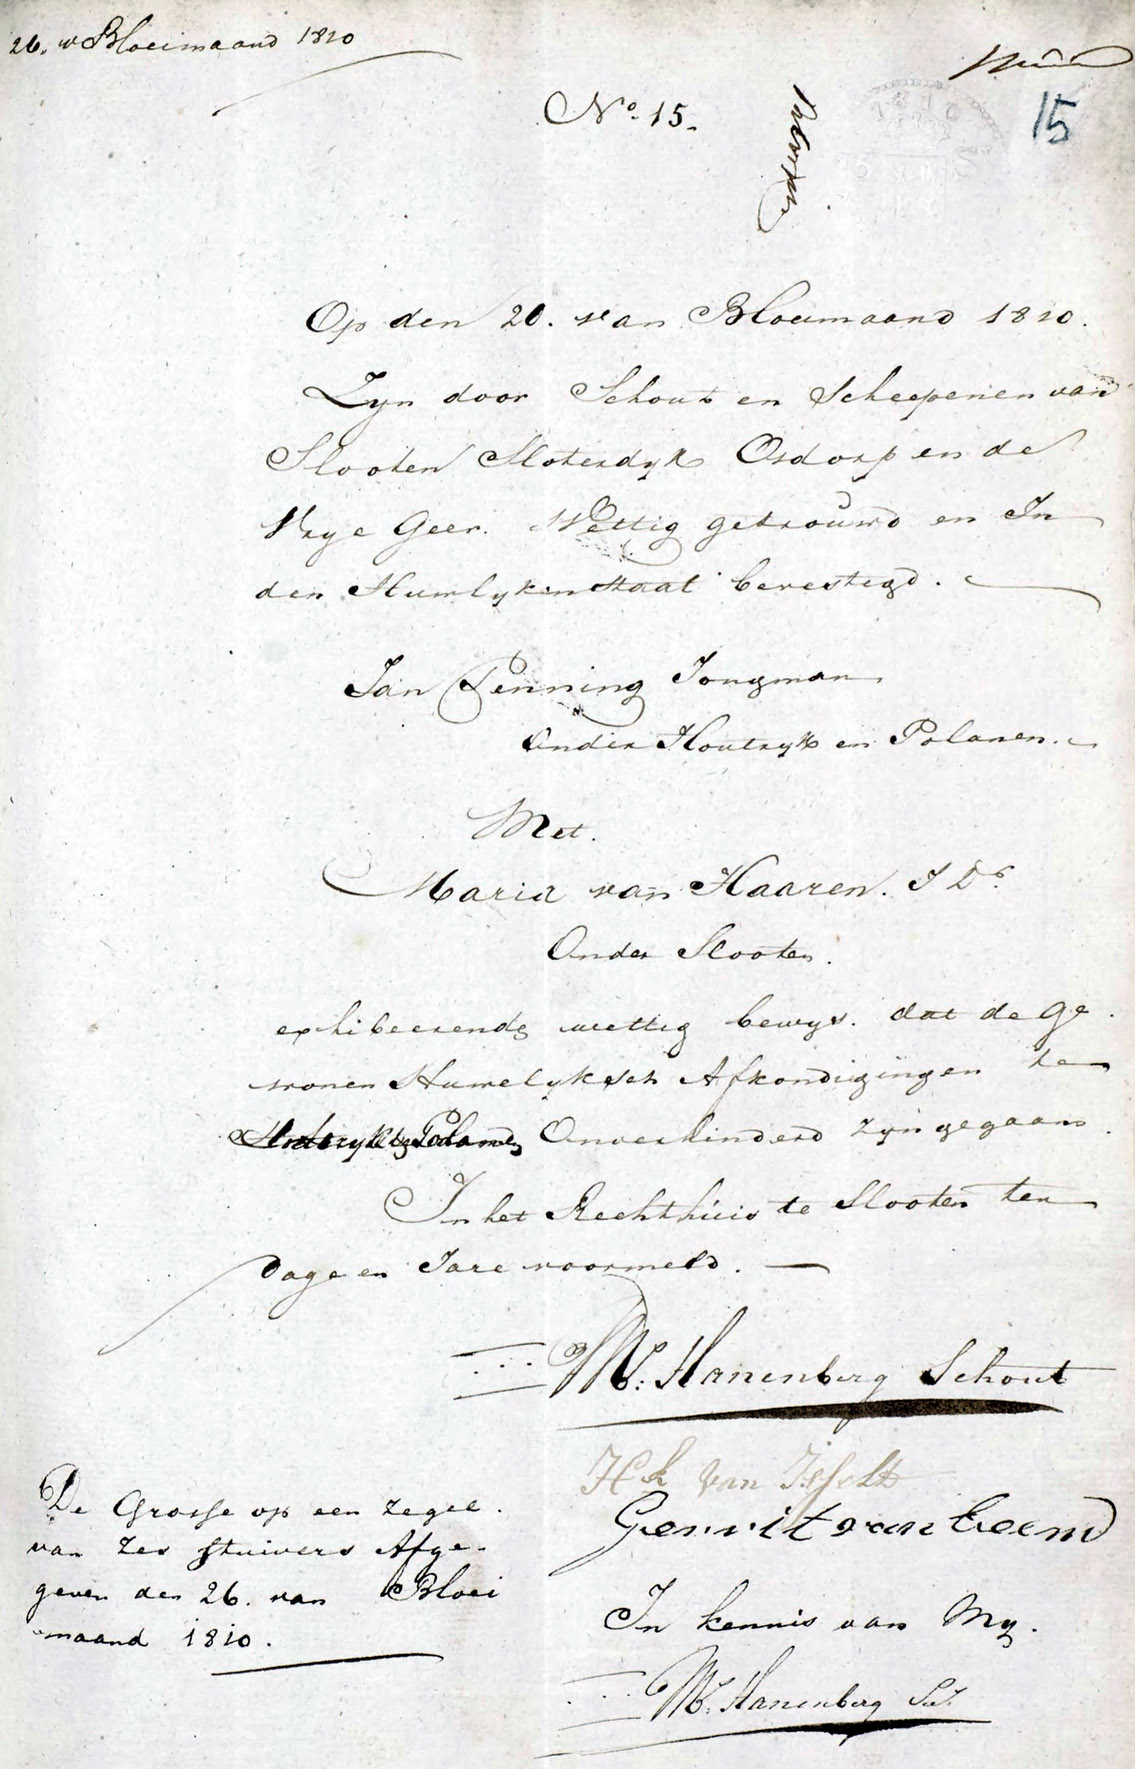 26. v Bloeimaand 1810
No. 15.
15
Op den 20. van Bloeimaand 1810.
Zyn door Schout en Scheepenen van
Slooten Sloterdyk Osdorp en de
Vrye Geer. Wettig getrouwd en In
den Huwlyken Staat bevestigd.
Jan Penning Jongman
Onder Houtryk en Polanen.
Met.
Maria van Haaren. J Dr.
Onder Slooten.
exhibeerende wettig bewys. dat de ge
wonen Huwelyksch Afkondigingen te
Houtryk en Polanen Onverhinderd zyn gegaan.
In het Rechthuis te Slooten ten
dage en Jare voormeld.
W: Hanenberg Schout
Hk van Isselt
Gerrit van Beem
De Grosse op een zegel.
van Zes stuivers Afge-
geven den 26. van Bloei
maand 1810.
In kennis van My.
W: Hanenberg Sec.